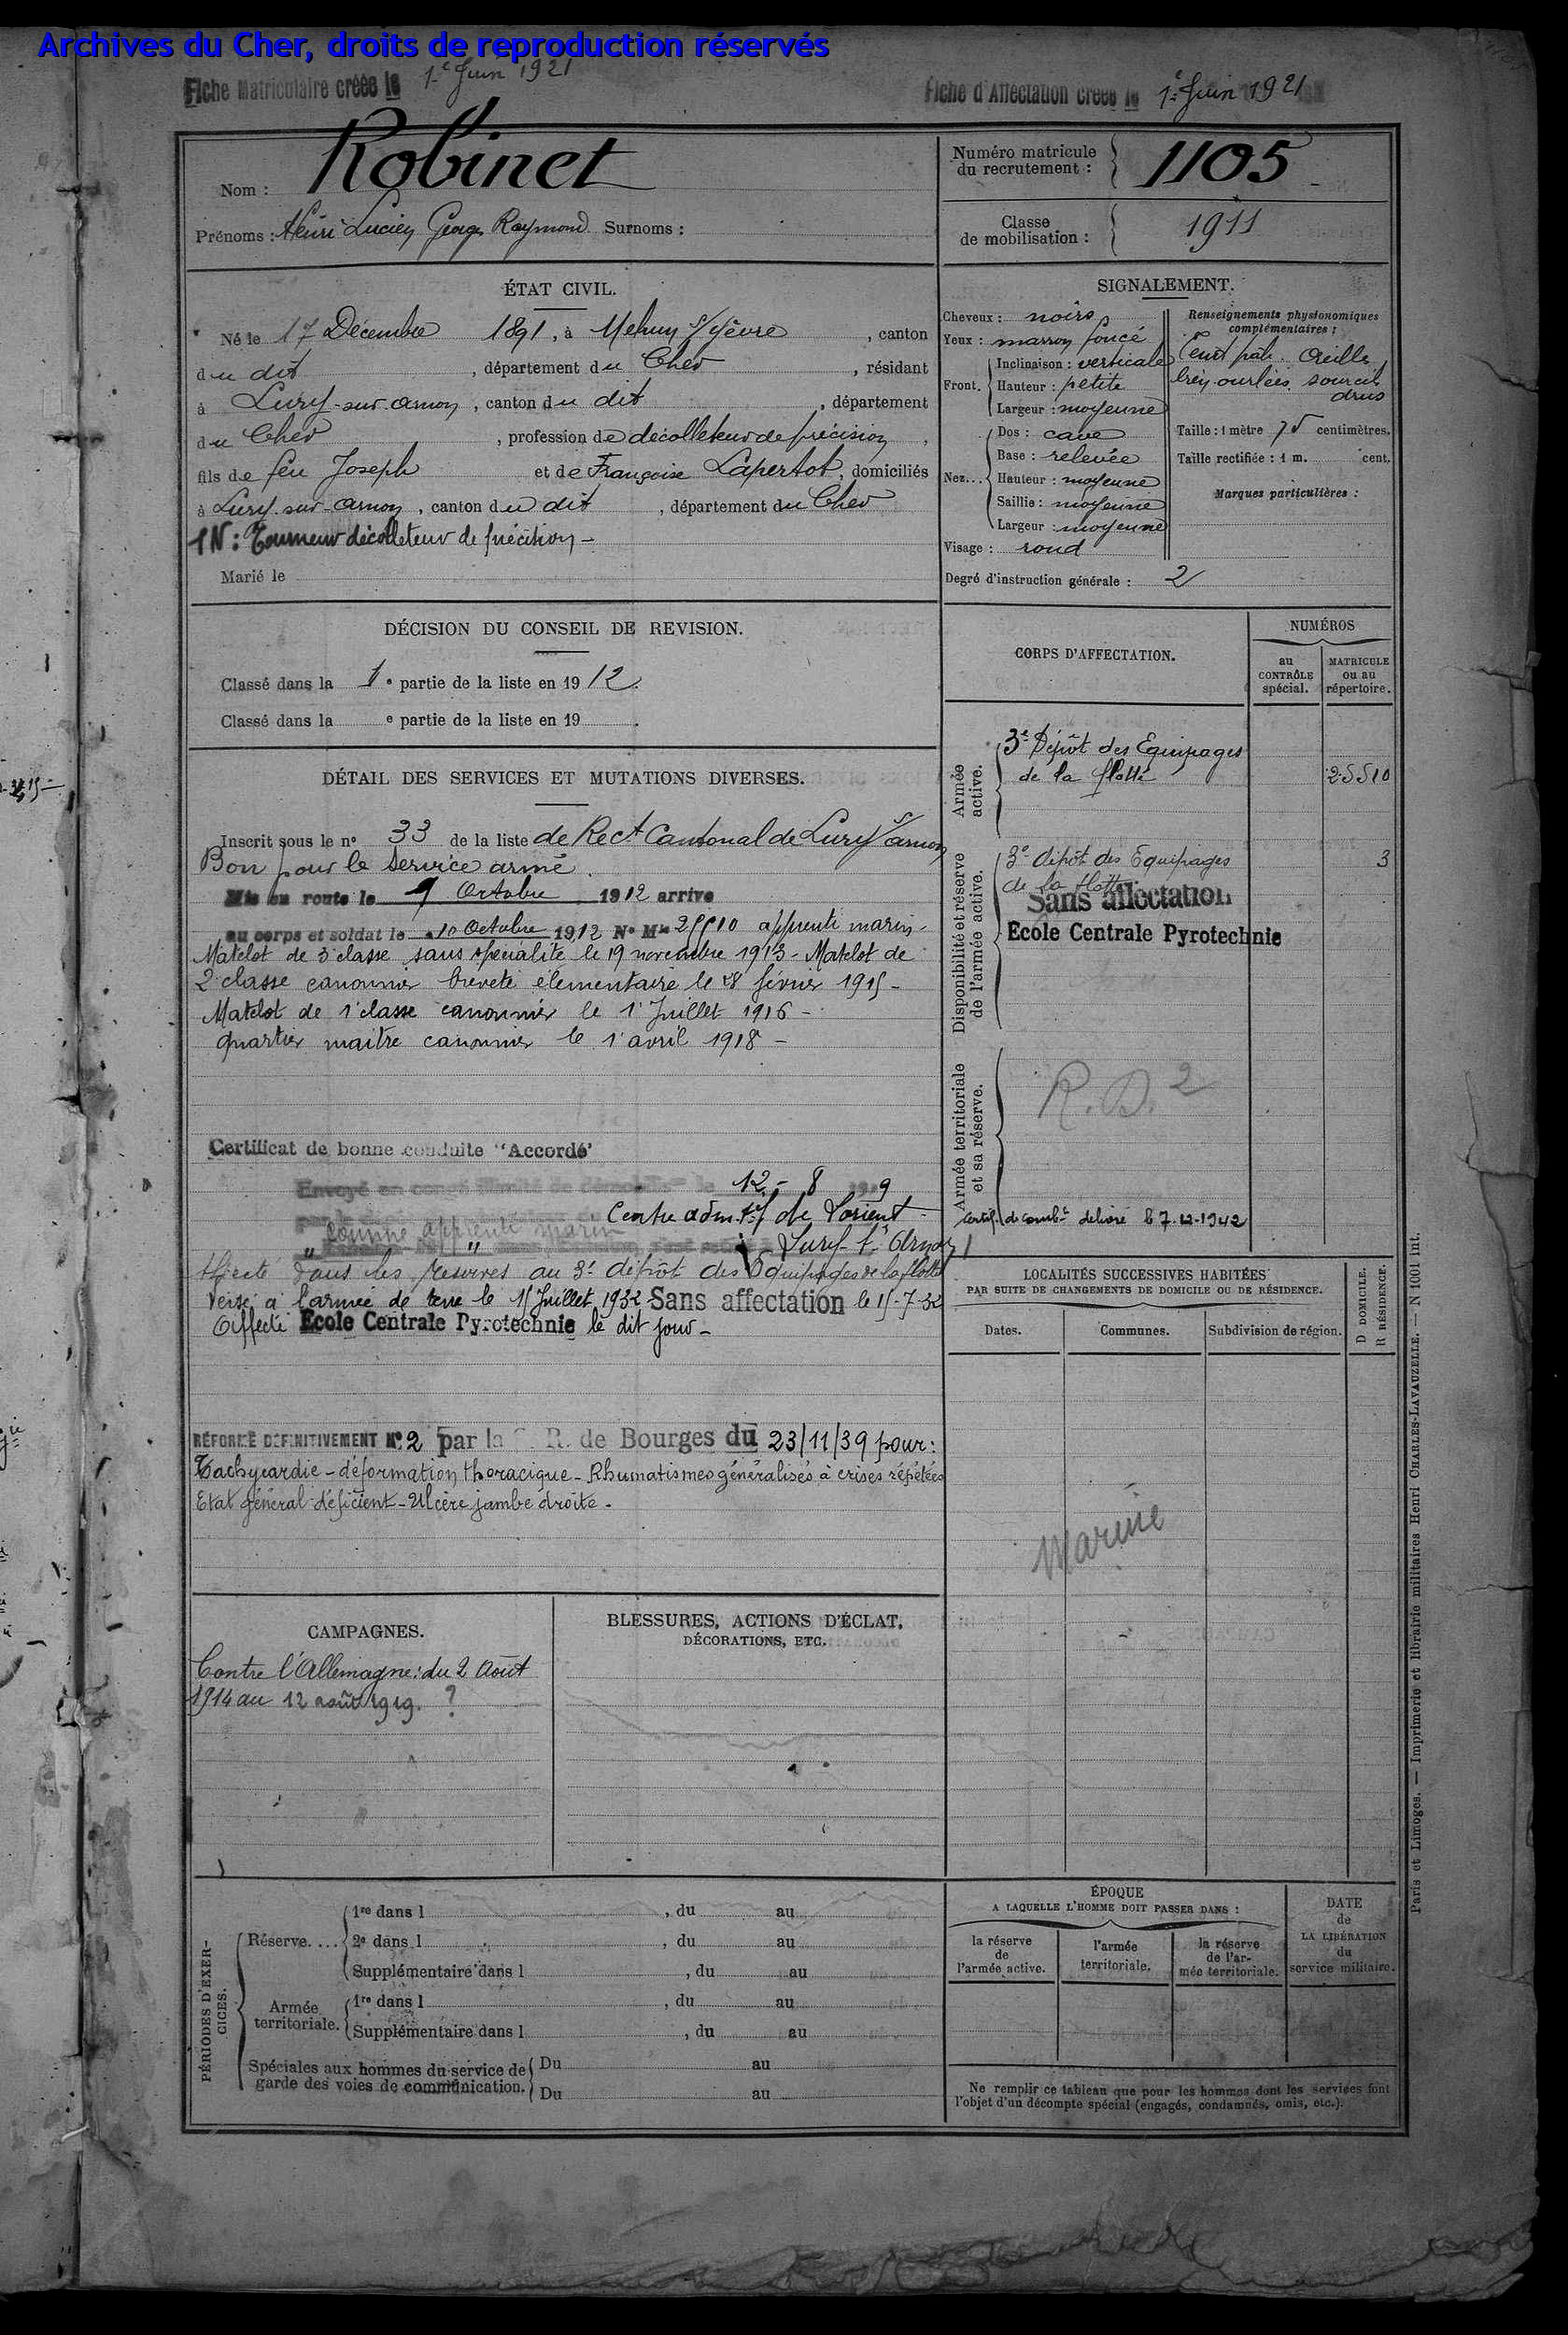 Archives du Cher, droits de reproduction réservés
Fiche Matriculaire créée le 1er Juin 1921
Fiche d'Affectation créée le 1er Juin 1921
Nom : Robinet
Prénoms : Henri Lucien Georges Raymond Surnoms :
Numéro matricule du recrutement : 1105
Classe de mobilisation : 1911
ÉTAT CIVIL.
Né le 17 Décembre 1891, à Mehun s/yèvre, canton
du dit, département du Cher, résidant
à Lury-sur-Arnon, canton du dit, département
du Cher, profession de décolleteur de précision,
fils de feu Joseph et de Françoise Lapertot, domiciliés
à Lury-sur-Arnon, canton du dit, département du Cher
1N : Tourneur décolleteur de précision -
Marié le
SIGNALEMENT.
Cheveux : noirs
Yeux : marron foncé
Front. Inclinaison : verticale
Hauteur : petite
Largeur : moyenne
Nez... Dos : cave
Base : relevée
Hauteur : moyenne
Saillie : moyenne
Largeur : moyenne
Visage : rond
Renseignements physionomiques complémentaires :
Teint pâle. Oreilles
très ourlées sourcils
drus
Taille : 1 mètre centimètres.
Taille rectifiée : 1 m. cent.
Marques particulières :
Degré d'instruction générale : 2
DÉCISION DU CONSEIL DE REVISION.
Classé dans la 1e partie de la liste en 1912.
Classé dans la e partie de la liste en 19 .
DÉTAIL DES SERVICES ET MUTATIONS DIVERSES.
Inscrit sous le n° 33 de la liste de Rect Cantonal de Lury s/ arnon
Bon pour le service armé.
Mis en route le 9 Octobre 1912 arrivé
au corps et soldat le 10 Octobre 1912 N° Mle 25510 apprenti marin -
Matelot de 3e classe sans spécialité le 19 novembre 1913 - Matelot de
2e classe canonnier breveté élémentaire le 28 février 1915 -
Matelot de 1e classe canonnier le 1er Juillet 1916 -
quartier maitre canonnier le 1er avril 1918 -
Certificat de bonne conduite "Accordé"
Envoyé en congé illimité de démobilisation le 12 - 8 1919
Centre admtif de Lorient -
comme apprenti marin
Lury s. Arnon
Affecté dans les réserves au 3e dépôt des Equipages de la flotte
Versé à l'armée de terre le 15 Juillet 1932 Sans affectation le 15-7-32
Affecté Ecole Centrale Pyrotechnie le dit jour -
RÉFORMÉ DÉFINITIVEMENT N° 2 par la C. R. de Bourges du 23/11/39 pour :
Tachycardie - déformation thoracique - Rhumatismes généralisés à crises répétées
Etat général déficient - Ulcère jambe droite -
CORPS D'AFFECTATION.
NUMÉROS
au CONTRÔLE spécial.
MATRICULE ou au répertoire.
Armée active.
3e Dépôt des Equipages
de la flotte 25510
Disponibilité et réserve de l'armée active.
3e dépôt des Equipages 3
de la flotte
Sans affectation
Ecole Centrale Pyrotechnie
Armée territoriale et sa réserve.
R. D. 2
Certif. de combt délivré le 7-12-1942
LOCALITÉS SUCCESSIVES HABITÉES
PAR SUITE DE CHANGEMENTS DE DOMICILE OU DE RÉSIDENCE.
Dates. Communes. Subdivision de région. D DOMICILE. R RÉSIDENCE.
Marine
CAMPAGNES.
Contre l'Allemagne : du 2 Août
1914 au 12 août 1919. ?
BLESSURES, ACTIONS D'ÉCLAT,
DÉCORATIONS, ETC.
PÉRIODES D'EXERCICES.
Réserve.... 1re dans l , du au
2e dans l , du au
Supplémentaire dans l , du au
Armée territoriale. 1re dans l , du au
Supplémentaire dans l , du au
Spéciales aux hommes du service de garde des voies de communication. Du au
Du au
ÉPOQUE
A LAQUELLE L'HOMME DOIT PASSER DANS :
la réserve de l'armée active.
l'armée territoriale.
la réserve de l'armée territoriale.
DATE de LA LIBÉRATION du service militaire.
Ne remplir ce tableau que pour les hommes dont les services font
l'objet d'un décompte spécial (engagés, condamnés, omis, etc.).
Paris et Limoges. — Imprimerie et librairie militaires Henri CHARLES-LAVAUZELLE. — N 1001 int.